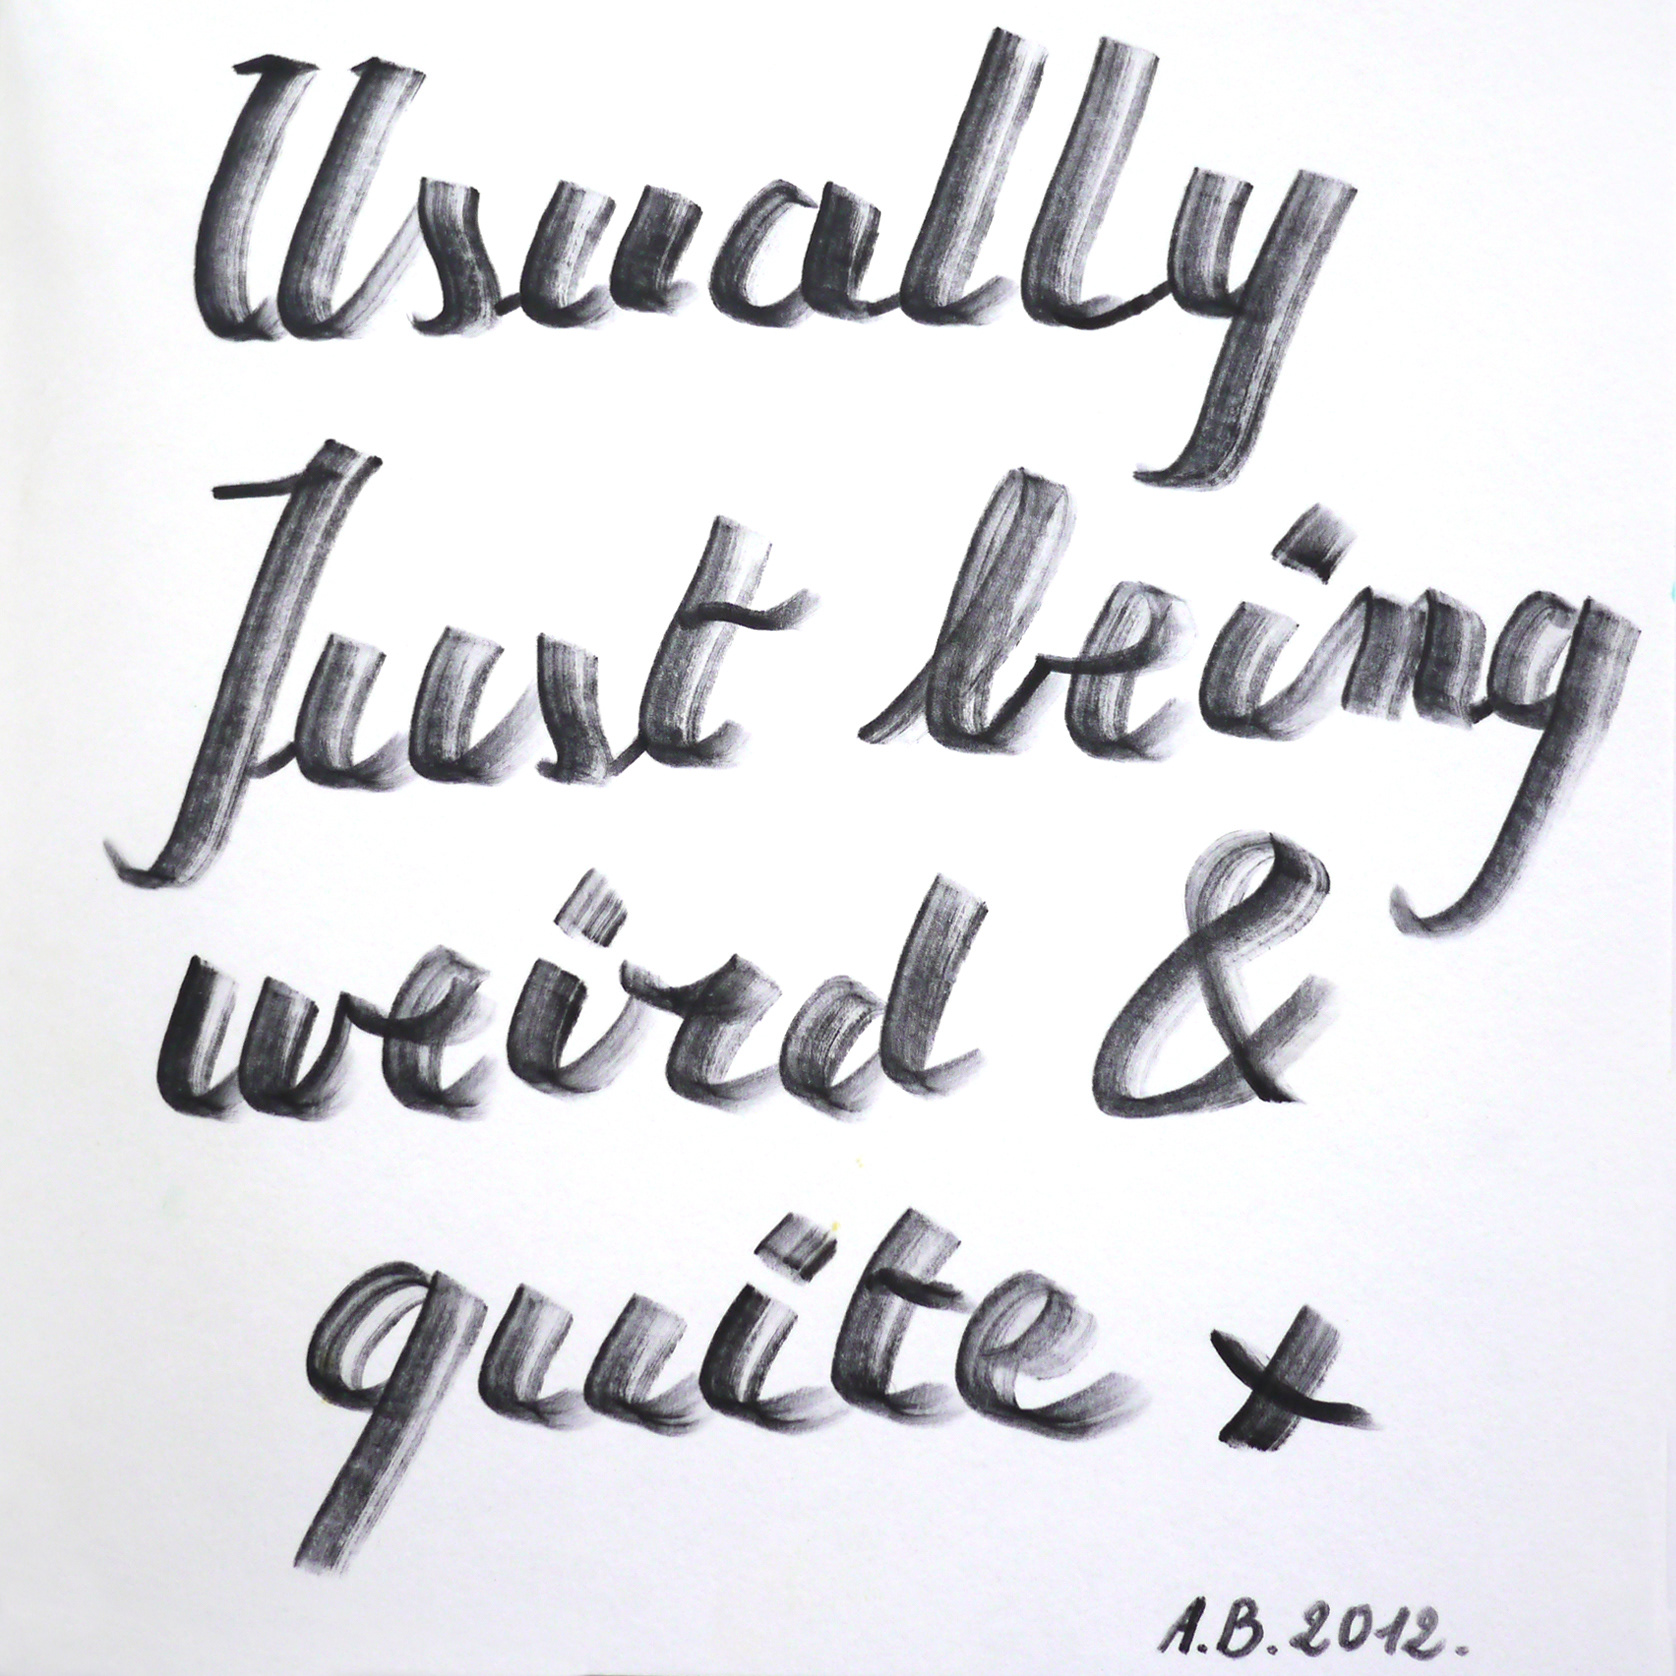 Usually
Just being
weird &
quite x
A.B. 2012.